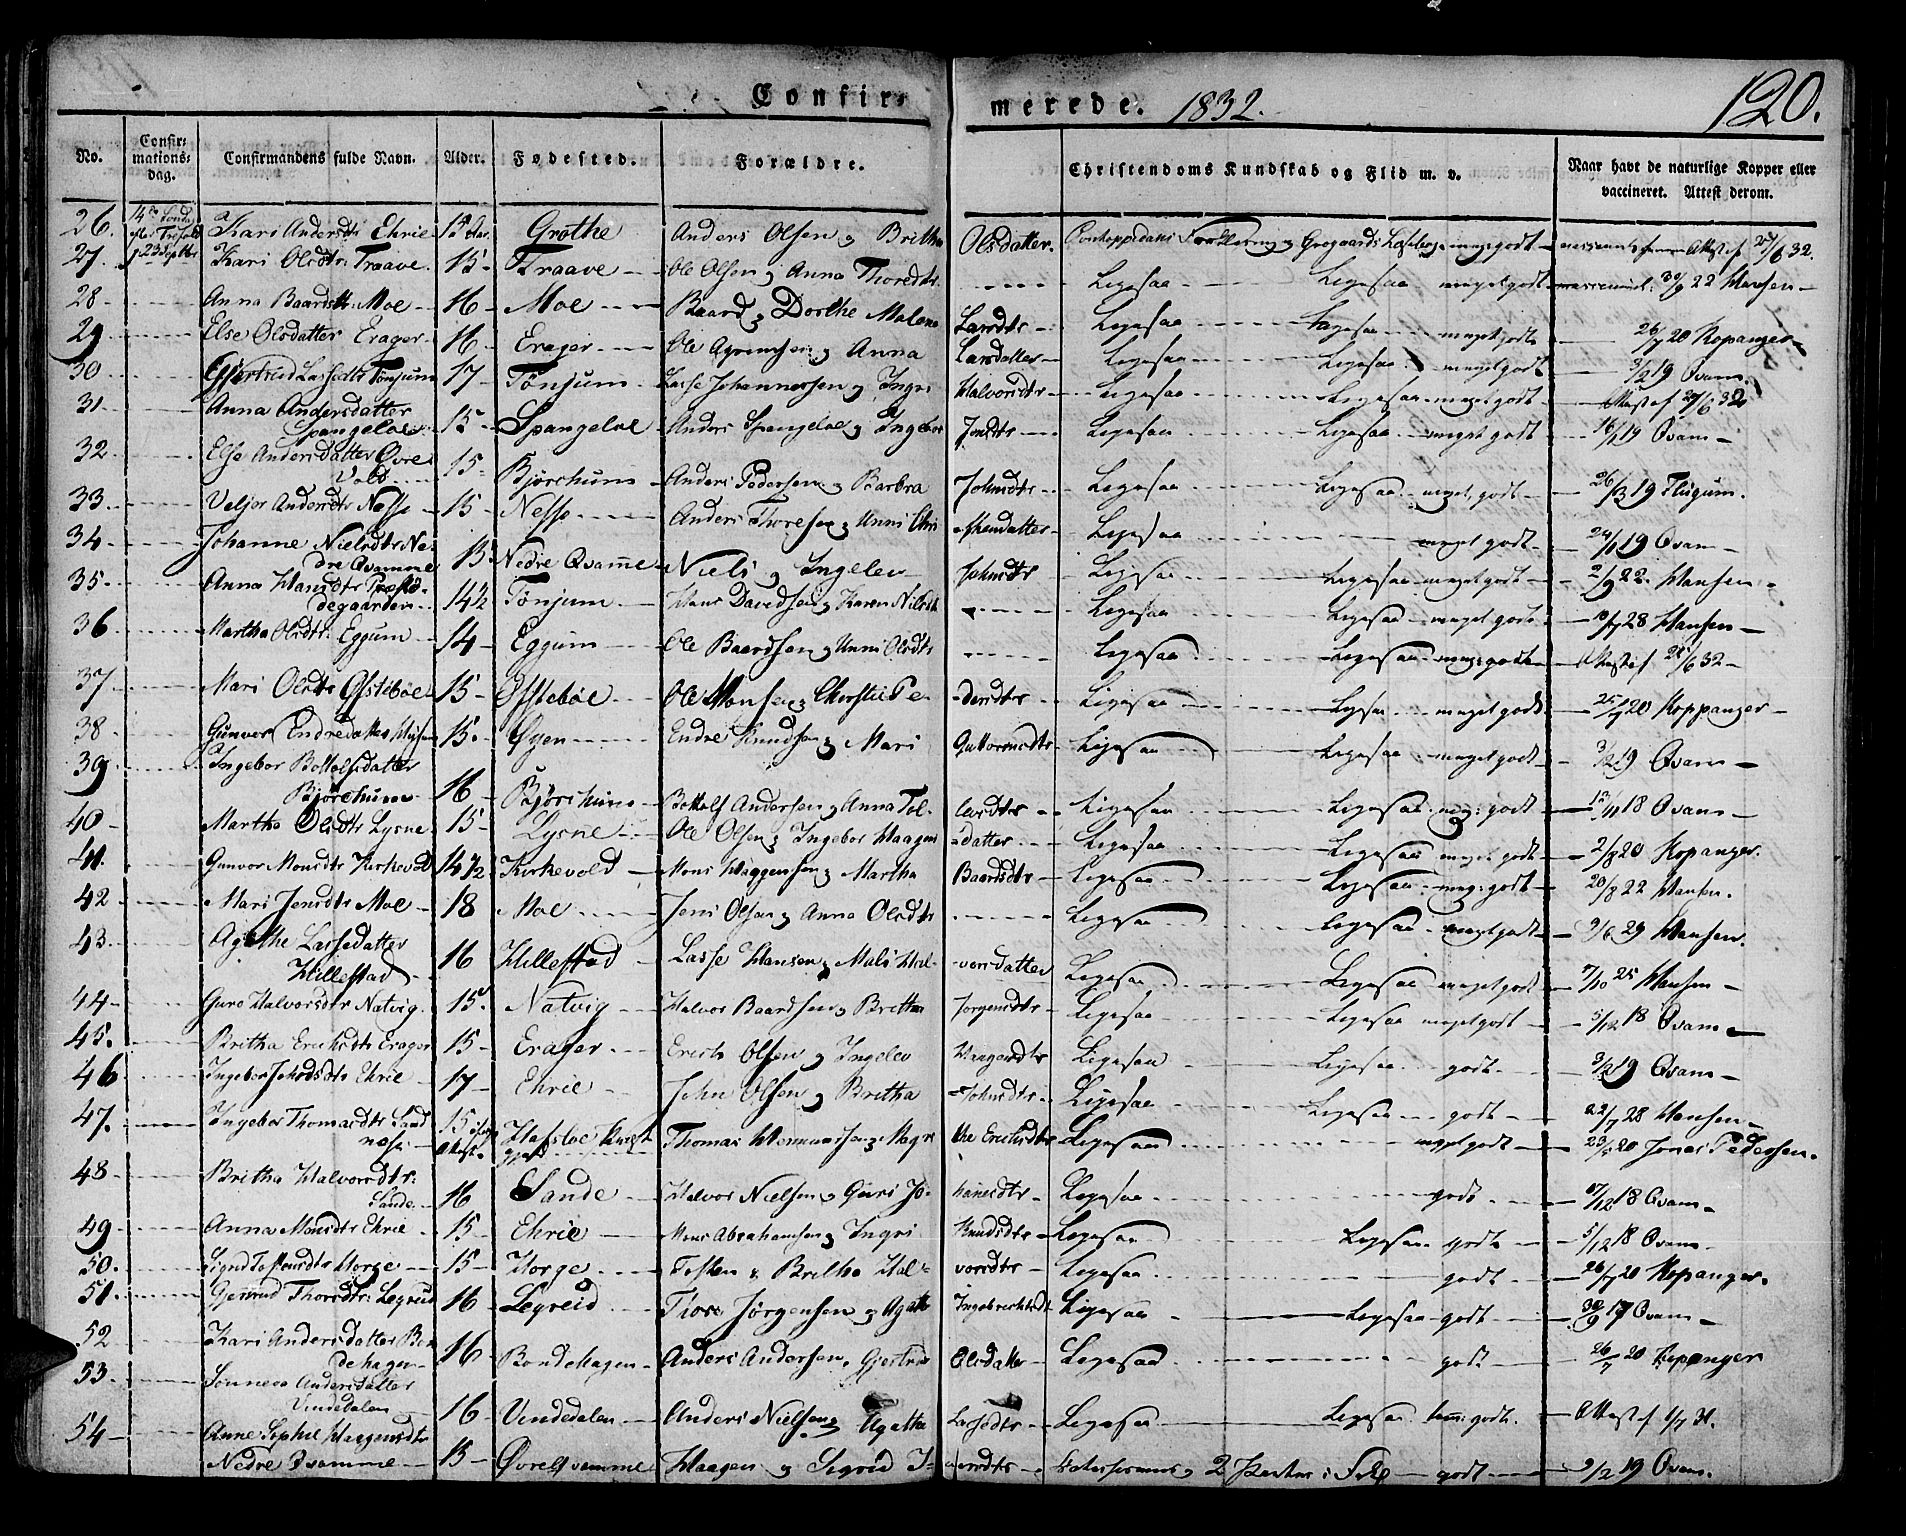 Confir-
merede. 1832.
120.
No.
Confir-
mations-
dag.
Confirmandens fulde Navn.
Alder.
Fødested.
Forældre.
Christendoms Kundskab og Flid m. v.
Naar havt de naturlige Kopper eller
vaccineret. Attest derom.
26. 14de Kari Andersdtr Ehrie 15 Grothe Anders Olsen og Brithe Olsdatter. Forklaring og Læsebog meget godt Attest af 25/6 32.
27. 23 Septbr Kari Olsdtr: Traave. 15 Traave Ole Olsen og Anna Thoresdtr. Ligesaa Ligesaa meget godt 30/9 22 Hansen
28 Anna Baardsdtr Moe 16 Moe Baard og Dorthe Malena Larsdtr Ligesaa Ligesaa meget godt 26/7 20 Kopanger
29 Else Olsdatter Erager 16 Erager Ole og Anna Larsdatter Ligesaa Ligesaa meget godt 3/2 19 Qvam.
30 Gjertrud Lassedtr Tønjum 17 Tønjum Lasse Johannessen og Ingri Halvorsdtr Ligesaa Ligesaa meget godt Attest af 29/6 32
31. Anna Andersdatter
Spangeloe 15 Spangeloe Anders Spangeloe og Ingebor Jensdtr Ligesaa Ligesaa meget godt 16/1 19 Qvam
32 Else Andersdatter Øvre
Vold 15 Bjørchum Anders Pedersen og Barbra Johnsdtr Ligesaa Ligesaa meget godt 26/3 19 Flugum.
33 Veljor Andersdtr Nesse 15 Nesse Anders Thoresen og Unni Chri-stensdatter Ligesaa meget godt 24/1 19 Qvam
34 Johanne Nielsdtr Ne-
dre Qvamme 15 Nedre Qvamme Niels og Ingelev Johnsdtr Ligesaa Ligesaa meget godt 2/9 22. Hansen
35 Anna Hansdtr Præste-
degaarden 14 1/2 Tønjum Hans Davidsen og Karen Nielsdtr Ligesaa Ligesaa meget godt 10/7 28 Hansen
36 Martha Olsdtr: Eggum 14 Eggum Ole Baardsen og Unni Olsdtr Ligesaa Ligesaa meget godt Attest af 28/6 32
37 Mari Olsdtr Øfstebøe 15 Øfstebøe Ole Monsen og Chirstie Pe-
dersdtr Ligesaa Ligesaa meget godt 25/7 20 Koppanger
38 Gunvor Endredatter 15. Øyen Endre Knudsen og Mari Guttormsdtr Ligesaa Ligesaa meget godt 3/2 19 Qvam
39 Ingebor Bottolfsdatter
Bjørchum 16 Bjørchum Bottolf Andersen og Anna Tol-
levsdtr Ligesaa Ligesaa meg: godt 12/11 18 Qvam
40 Martha Olsdtr Lysne 15 Lysne Ole Olsen og Ingebor Haagens-
datter Ligesaa Ligesaa meget godt 2/8 20 Kopanger.
41. Gunvor Monsdtr Kirkevold 14 1/2 Kirkevold Mons Haggensen og Martha Baardsdtr Ligesaa Ligesaa meg: godt 20/8 22 Hansen.
42 Mari Jensdtr Moe 18 Moe Jens Olsen og Anna Olsdtr Ligesaa Ligesaa meget godt 9/6 29 Hansen.
43. Agathe Lassedatter
Hillestad 16 Hillestad Lasse Hansen og Mali Hal-
vorsdatter Ligesaa Ligesaa meget godt 7/10 25 Hansen
44 Guro Halvorsdtr Natvig. 15. Natvig Halvor Baardsen og Brithe Jørgensdtr Ligesaa Ligesaa meget godt 5/12 18 Qvam
45. Britha Erichsdtr Erager 15 Erager Erich Olsen og Ingelev Haagensdtr Ligesaa Ligesaa godt 3/2 19 Qvam
46 Ingebor Johnsdtr Ehrie 17 Ehrie John Olsen og Britha Johnsdtr Ligesaa Ligesaa godt 22/7 28 Hansen
47. Ingebor Thomasdtr Sand
næse 15 Hafsloe Præst-
gjeld Thomas og Erichsdtr Ligesaa meget godt 23/5 20 Jones Pedersen.
48 Britha Halvorsdtr:
Sande 16 Sande Halvor Nielsen og Guri Jo-
hansdtr Ligesaa godt 17/12 18 Qvam
49 Anna Monsdtr Ehrie 15 Ehrie Mons Abrahamsen og Ingri Knudsdtr Ligesaa Ligesaa godt 5/12 18 Qvam
50. Tostensdtr Horge 15 Horge Tosten & Britha Hal-
vorsdtr Ligesaa godt 26/7 20 Kopanger.
51. Gjertrud Thoresdtr: Legreid 16 Legreid Thore Jørgensen og Agathe Ingebrechtsdtr Ligesaa Ligesaa godt 30/9 17 Qvam
52 Kari Andersdatter Bon
dehagen 16 Bondehagen Anders Andersen, Gjertrud Olsdatter Ligesaa godt 26/7 20 Kopanger
53. Sønneva Andersdatter
Vindedalen 16 Vindedalen Anders Nielsen og Agatha Larsdtr Ligesaa Ligesaa godt. Attest af 1/7 31.
54 Anne Sophie Haagensdtr
Nedre Qvamme 15 Øvre Qvamme Haagen og Sigrid I-
versdtr Katechismus og 2 Parter i godt 9/2 19 Qvam.